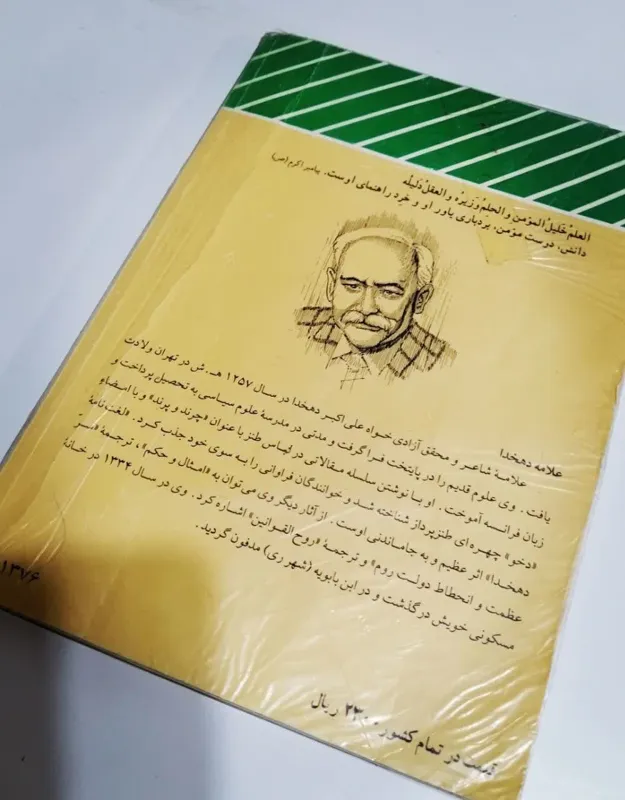 العلمُ خلیلُ المؤمن و الحلمُ وَزیرُه و العقلُ دَلیلُه
دانش، دوست مؤمن، بردباری یاور او و خرد راهنمای اوست. پیامبر اکرم (ص)
علامه دهخدا
علامهٔ شاعر و محقق آزادی خواه علی اکبر دهخدا در سال ۱۲۵۷ هـ.ش در تهران ولادت
یافت. وی علوم قدیم را در پایتخت فرا گرفت و مدتی در مدرسهٔ علوم سیاسی به تحصیل پرداخت و
زبان فرانسه آموخت. او با نوشتن سلسله مقالاتی در لباس طنز با عنوان «چرند و پرند» و با امضاء
«دخو» چهره‌ای طنزپرداز شناخته شد و خوانندگان فراوانی را به سوی خود جذب کرد. «لغت‌نامهٔ
دهخدا» اثر عظیم و به جاماندنی اوست. از آثار دیگر وی می‌توان به «امثال و حکم»، ترجمهٔ «سرّ
عظمت و انحطاط دولت روم» و ترجمهٔ «روح القوانین» اشاره کرد. وی در سال ۱۳۳۴ در خانهٔ
مسکونی خویش درگذشت و در ابن بابویه (شهر ری) مدفون گردید.
۱۳۷۶
قیمت در تمام کشور ریال